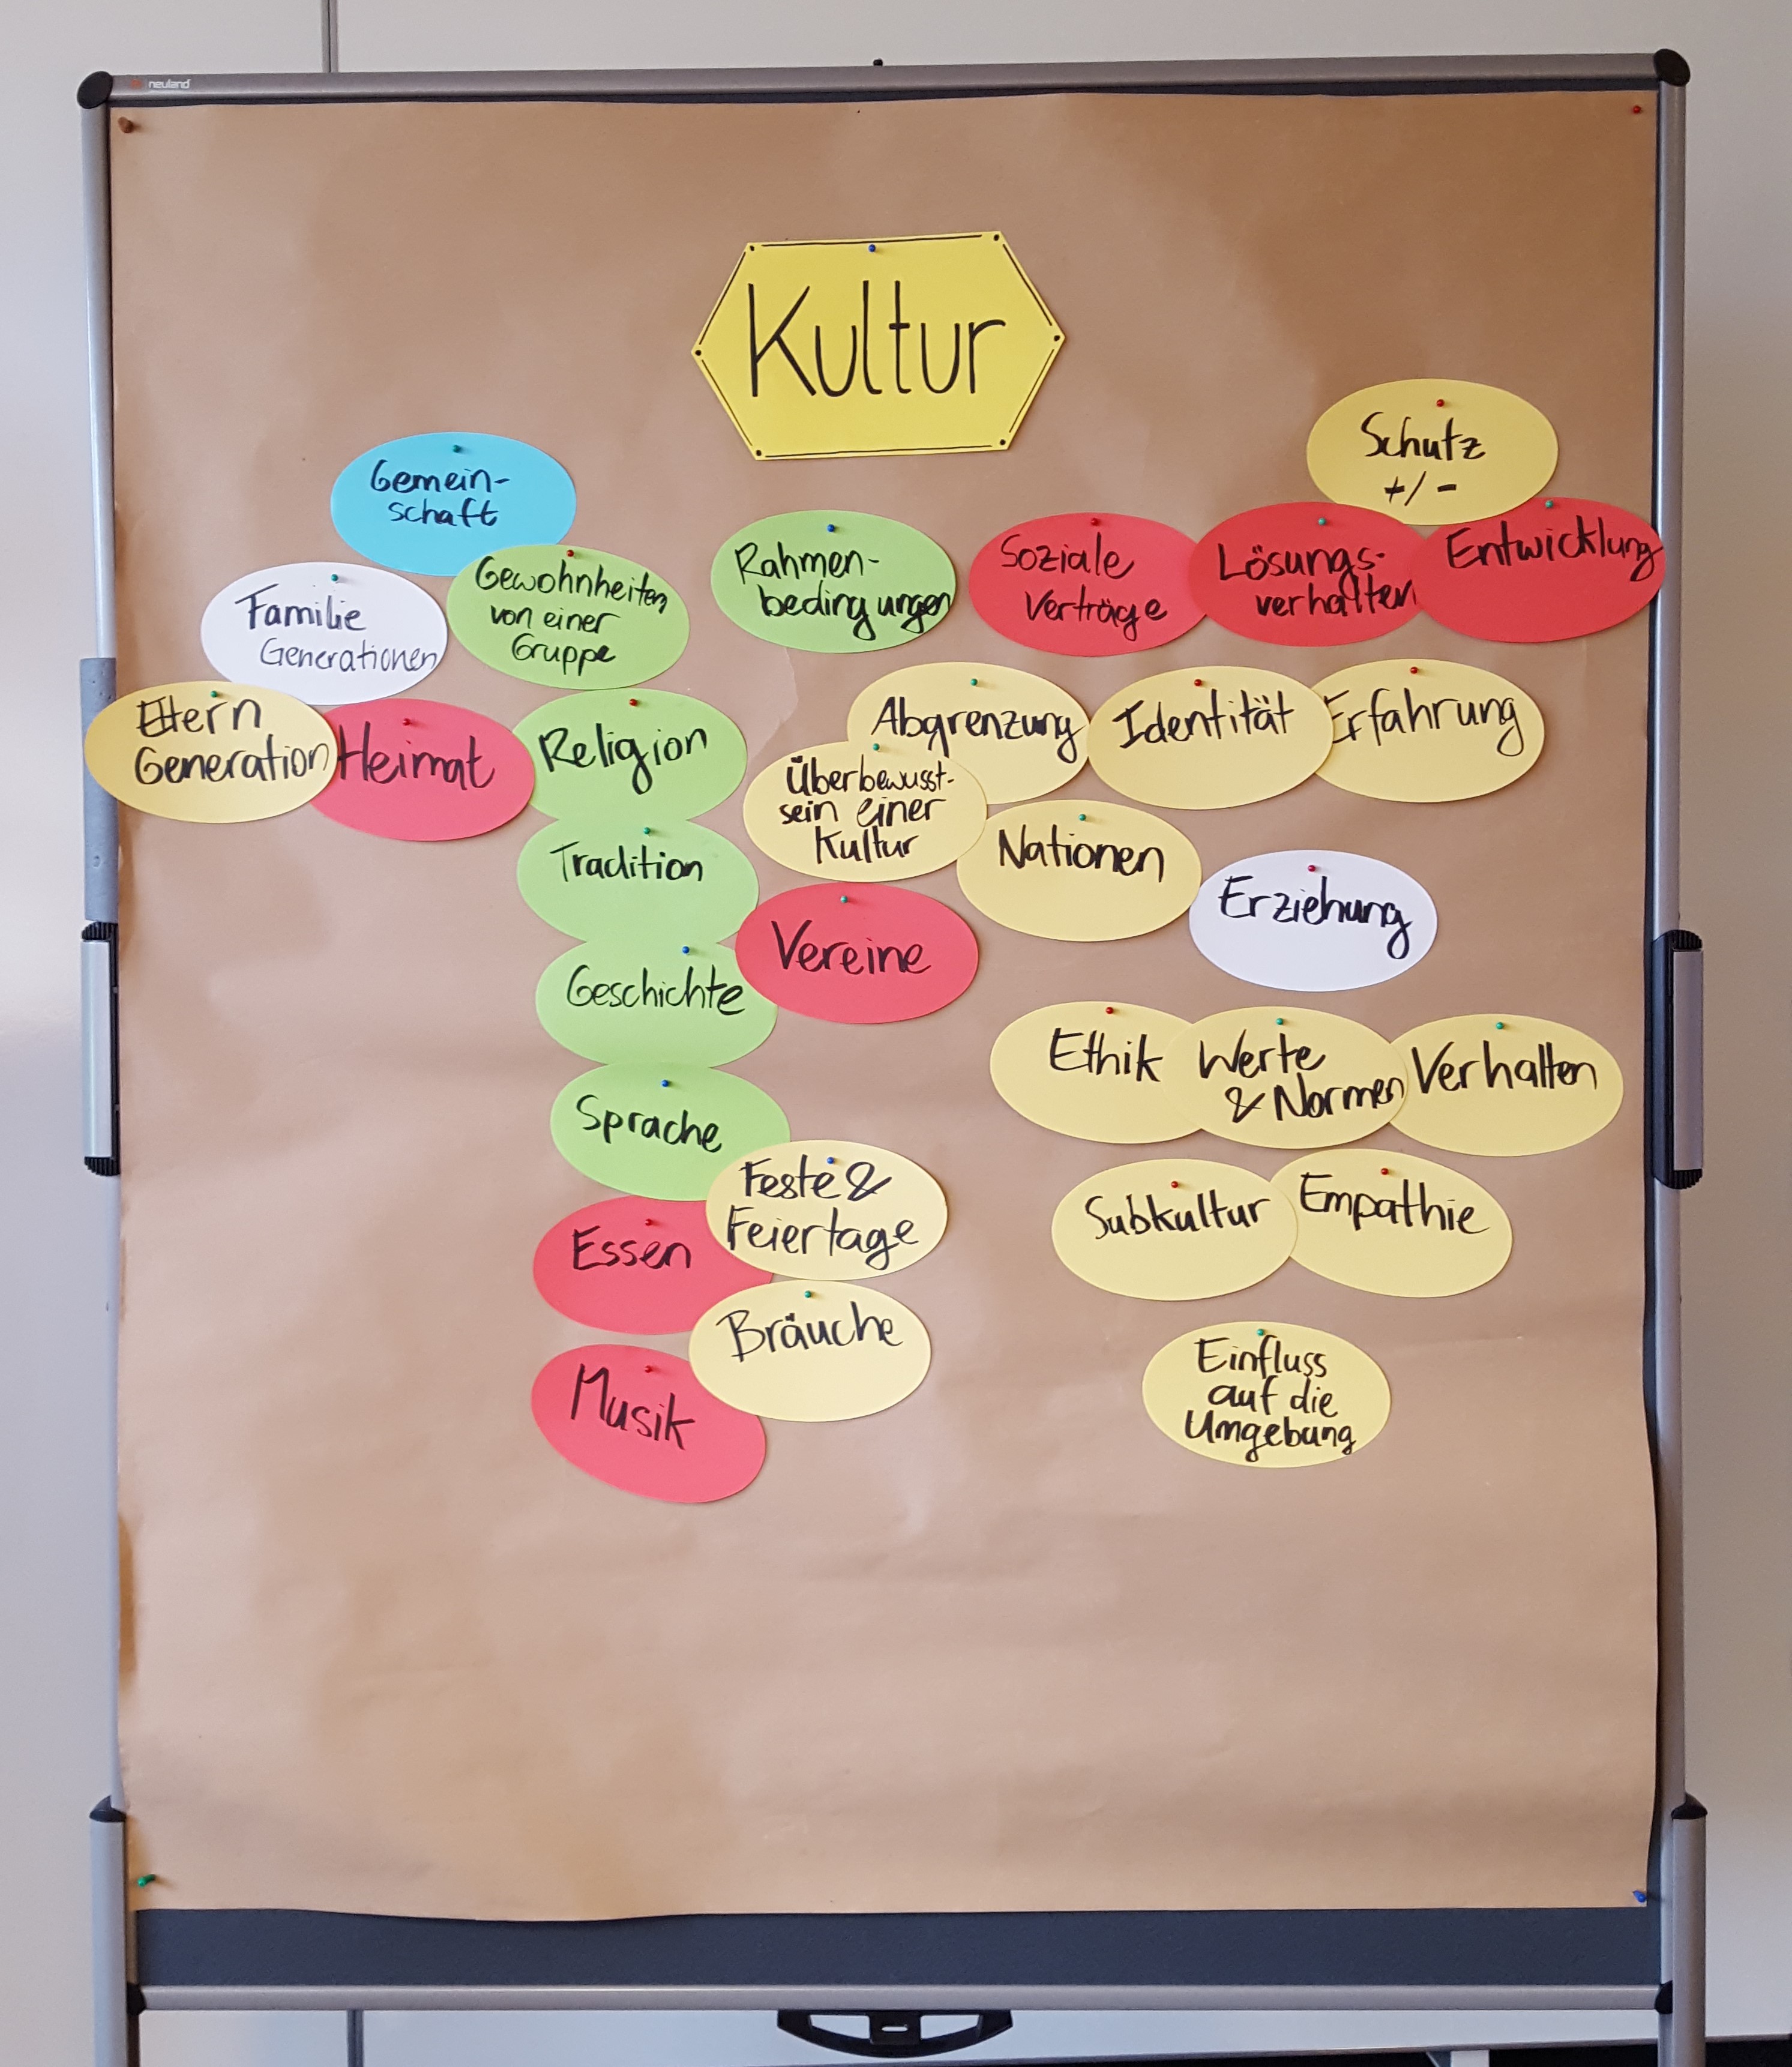 neuland
Kultur
Schutz
+/-
Gemein-
schaft
Familie
Generationen
Gewohnheiten
von einer
Gruppe
Rahmen-
bedingungen
Soziale
Verträge
Lösungs-
verhalten
Entwicklung
Eltern
Generation
Heimat
Religion
Abgrenzung
Identität
Erfahrung
Überbewusst-
sein einer
Kultur
Nationen
Tradition
Vereine
Erziehung
Geschichte
Ethik
Werte
& Normen
Verhalten
Sprache
Feste &
Feiertage
Subkultur
Empathie
Essen
Bräuche
Musik
Einfluss
auf die
Umgebung